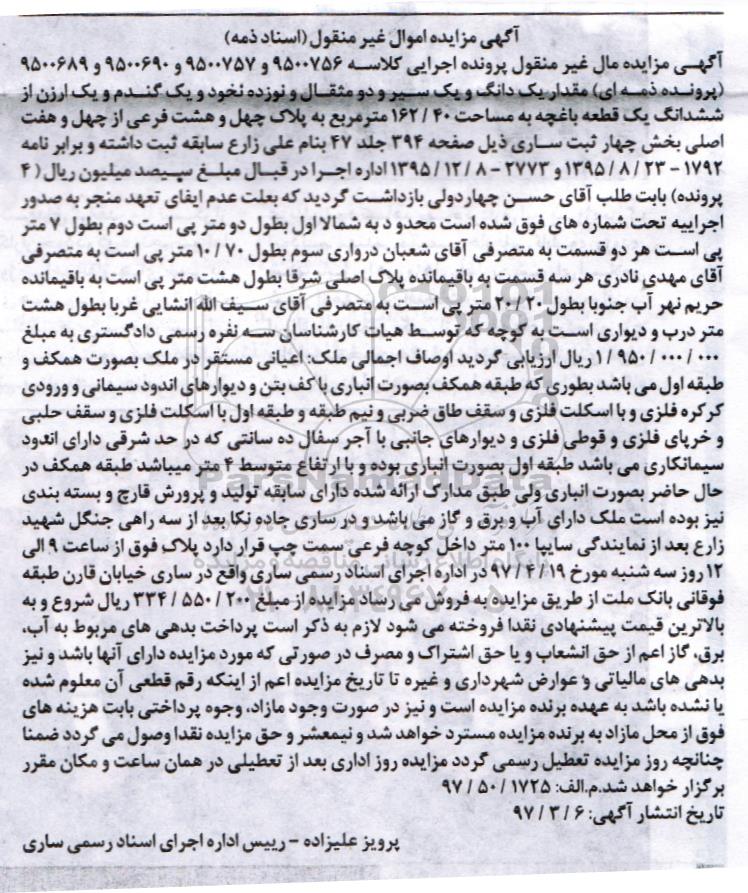 آگهی مزایده اموال غیر منقول (اسناد ذمه)
آگهی مزایده مال غیر منقول پرونده اجرایی کلاسه ۹۵۰۰۷۵۶ و ۹۵۰۰۷۵۷ و ۹۵۰۰۶۹۰ و ۹۵۰۰۶۸۹
(پرونده ذمه ای) مقدار یک دانگ و یک سیر و دو مثقال و نوزده نخود و یک گندم و یک ارزن از
ششدانگ یک قطعه باغچه به مساحت ۴۰ / ۱۶۲ مترمربع به پلاک چهل و هشت فرعی از چهل و هفت
اصلی بخش چهار ثبت ساری ذیل صفحه ۳۹۴ جلد ۴۷ بنام علی زارع سابقه ثبت داشته و برابر نامه
۱۷۹۲ - ۲۳ / ۸ / ۱۳۹۵ و ۲۷۷۳ - ۸ / ۱۲ / ۱۳۹۵ اداره اجرا در قبال مبلغ سیصد میلیون ریال ( ۴
پرونده) بابت طلب آقای حسن چهاردولی بازداشت گردید که بعلت عدم ایفای تعهد منجر به صدور
اجراییه تحت شماره های فوق شده است محدود به شمالا اول بطول دو متر پی است دوم بطول ۷ متر
پی است هر دو قسمت به متصرفی آقای شعبان درواری سوم بطول ۷۰ / ۱۰ متر پی است به متصرفی
آقای مهدی نادری هر سه قسمت به باقیمانده پلاک اصلی شرقا بطول هشت متر پی است به باقیمانده
حریم نهر آب جنوبا بطول ۲۰ / ۲۰ متر پی است به متصرفی آقای سیف الله انشایی غربا بطول هشت
متر درب و دیواری است به کوچه که توسط هیات کارشناسان سه نفره رسمی دادگستری به مبلغ
۰۰۰ / ۰۰۰ / ۹۵۰ / ۱ ریال ارزیابی گردید اوصاف اجمالی ملک: اعیانی مستقر در ملک بصورت همکف و
طبقه اول می باشد بطوری که طبقه همکف بصورت انباری با کف بتن و دیوارهای اندود سیمانی و ورودی
کرکره فلزی و با اسکلت فلزی و سقف طاق ضربی و نیم طبقه و طبقه اول با اسکلت فلزی و سقف حلبی
و خرپای فلزی و قوطی فلزی و دیوارهای جانبی با آجر سفال ده سانتی که در حد شرقی دارای اندود
سیمانکاری می باشد طبقه اول بصورت انباری بوده و با ارتفاع متوسط ۴ متر میباشد طبقه همکف در
حال حاضر بصورت انباری ولی طبق مدارک ارائه شده دارای سابقه تولید و پرورش قارچ و بسته بندی
نیز بوده است ملک دارای آب و برق و گاز می باشد و در ساری جاده نکا بعد از سه راهی جنگل شهید
زارع بعد از نمایندگی سایپا ۱۰۰ متر داخل کوچه فرعی سمت چپ قرار دارد پلاک فوق از ساعت ۹ الی
۱۲ روز سه شنبه مورخ ۱۹ / ۴ / ۹۷ در اداره اجرای اسناد رسمی ساری واقع در ساری خیابان قارن طبقه
فوقانی بانک ملت از طریق مزایده به فروش می رساد مزایده از مبلغ ۲۰۰ / ۵۵۰ / ۳۳۴ ریال شروع و به
بالاترین قیمت پیشنهادی نقدا فروخته می شود لازم به ذکر است پرداخت بدهی های مربوط به آب،
برق، گاز اعم از حق انشعاب و یا حق اشتراک و مصرف در صورتی که مورد مزایده دارای آنها باشد و نیز
بدهی های مالیاتی و عوارض شهرداری و غیره تا تاریخ مزایده اعم از اینکه رقم قطعی آن معلوم شده
یا نشده باشد به عهده برنده مزایده است و نیز در صورت وجود مازاد، وجوه پرداختی بابت هزینه های
فوق از محل مازاد به برنده مزایده مسترد خواهد شد و نیمعشر و حق مزایده نقدا وصول می گردد ضمنا
چنانچه روز مزایده تعطیل رسمی گردد مزایده روز اداری بعد از تعطیلی در همان ساعت و مکان مقرر
برگزار خواهد شد.م.الف: ۱۷۲۵ / ۵۰ / ۹۷
تاریخ انتشار آگهی: ۶ / ۳ / ۹۷
پرویز علیزاده - رییس اداره اجرای اسناد رسمی ساری
ParsNamadData